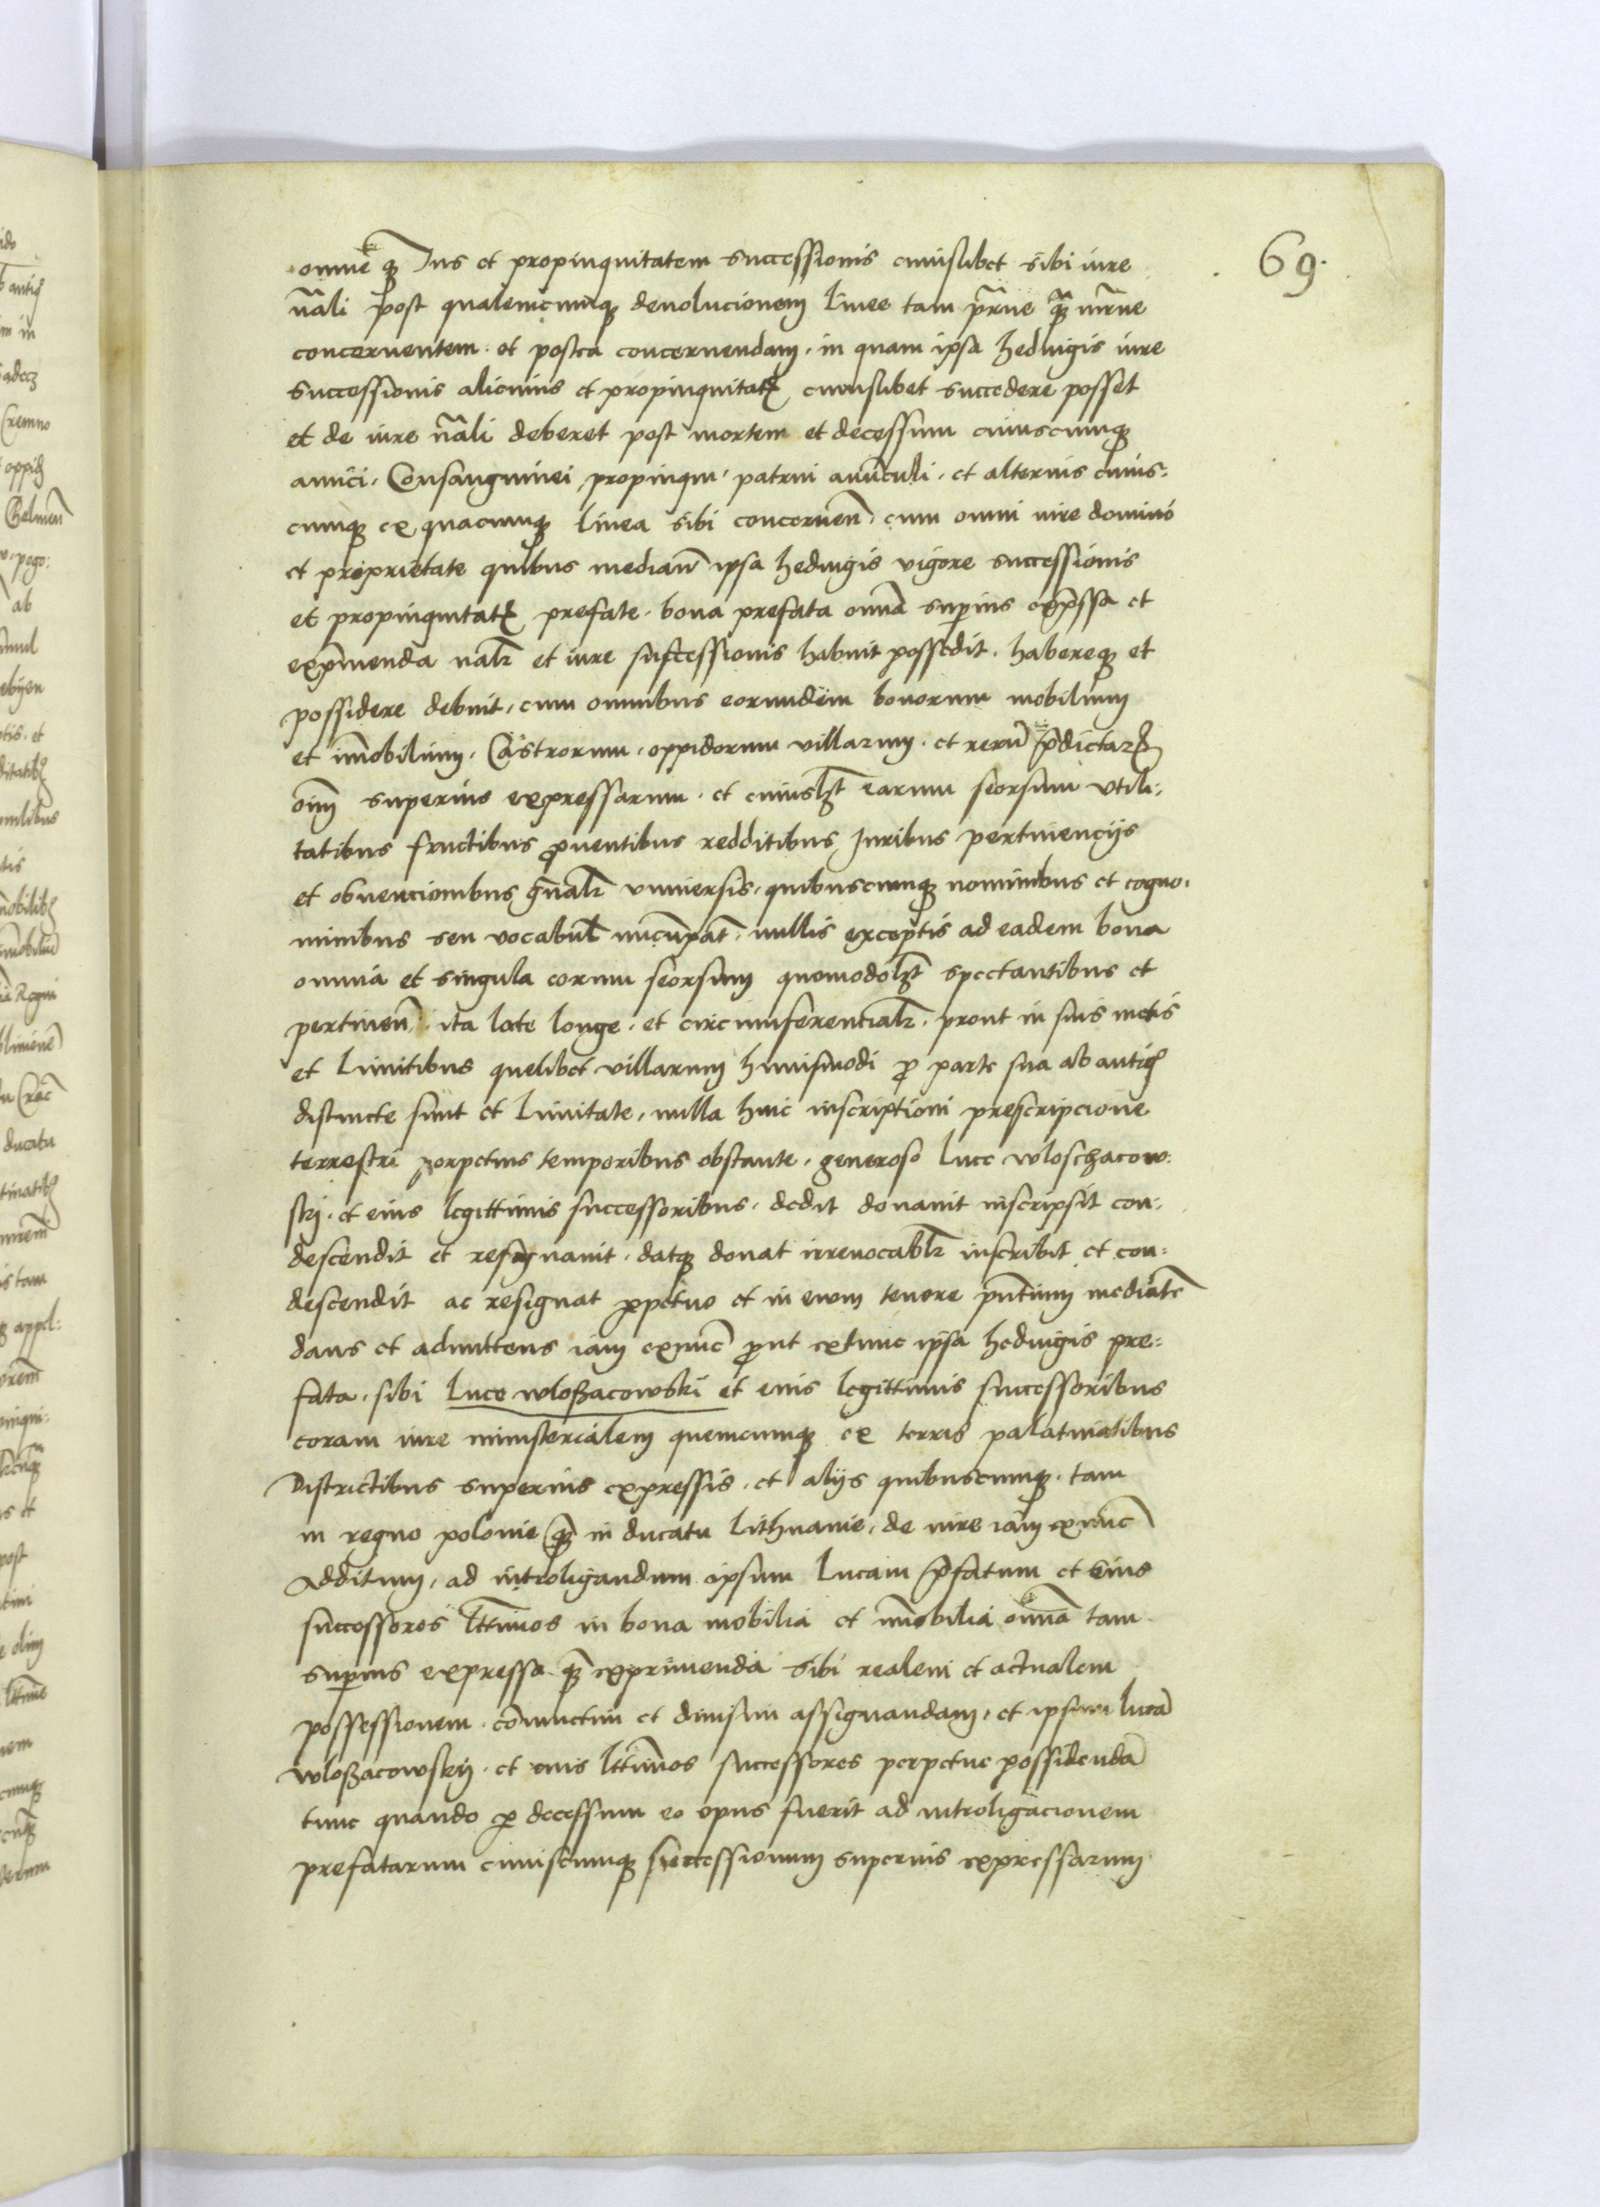 69.
omne q₃ Ius et propinquitatem successionis cuiuslibet sibi iure
nāli post qualemcumq₃ devolucionem linee tam pr̄ne q̄₃ mr̄ne
concernentem · et postea concernendam · in quam ipsa hedvigis iure
successionis alicuius et propinquitatꝭ cuiuslibet succedere posset
et de iure nāli deberet post mortem et decessum cuiuscumq₃
amici · Consanguinei propinqui · patrui avunculi · et alterius cuius:
cumq₃ ex quacumq₃ linea sibi concerneñ · cum omni iure dominio
et proprietate quibus mediañ ipsa hedvigis vigore successionis
et propinquitatꝭ prefate · bona prefata om̄ia superius exp̄ssa et
exp̄menda nalr̄ et iure successionis habuit possedit · habereq₃ et
possidere debuit, cum omnibus eorundem bonorum mobilium
et im̄obilium · Castrorum · oppidorum villarum · et rerū p̄dictarꝝ
oim̄ superius expressarum · et cuiusl₃t earum seorsum utili:
tatibus fructibus ꝓventibus redditibus Iuribus pertinencijs
et obvencionibus gn̄alr̄ universis · quibuscumq₃ nominibus et cogno:
minibus seu vocabul̄ nūcupat̄ · nullis exceptis ad eadem bona
omnia et singula eorum seorsum quomodol₃t spectantibus et
pertineñ · ita late longe · et circumferencialr̄ · prout in suis metis
et Limitibus quelibet villarum huiusmodi ꝓ parte sua ab antiq̊
distincte sunt et Limitate, nulla huic inscriptioni prescripcione
terrestri perpetuis temporibus obstante · generoso Luce wloschacow:
skj · et eius legittimis successoribus · dedit donavit inscripsit con:
descendit et resignavit · datq₃ donat irrevocablr̄ inscribit et con:
descendit ac resignat ꝑpetuo et in evum tenore pn̄tium mediāte
dans et admittens iam exnūc ꝓut extunc ipsa hedvigis pre:
fata · sibi Luce wloßacowski et eius legittimis successoribus
coram iure ministerialem quemcumq₃ ex terris palatinatibus
Districtibus superius expressis · et alijs quibuscumq₃ · tam
in regno polonie q̄₃ in ducatu Lithuanie, de iure iam exnūc
Additum, ad introligandum ipsum Lucam p̄fatum et eius
successores lt̄timos in bona mobilia et im̄obilia om̄ia tam
superius expressa q̄₃ exprimenda sibi realem et actualem
possessionem · cōiunctim et divisim assignandam, et ipsum lucā
wloßacowskij · et eius lt̄timos successores perpetue possidendā
tunc quando ꝑ decessum eo opus fuerit ad introligacionem
prefatarum cuiuscumq₃ successionum superius expressarum